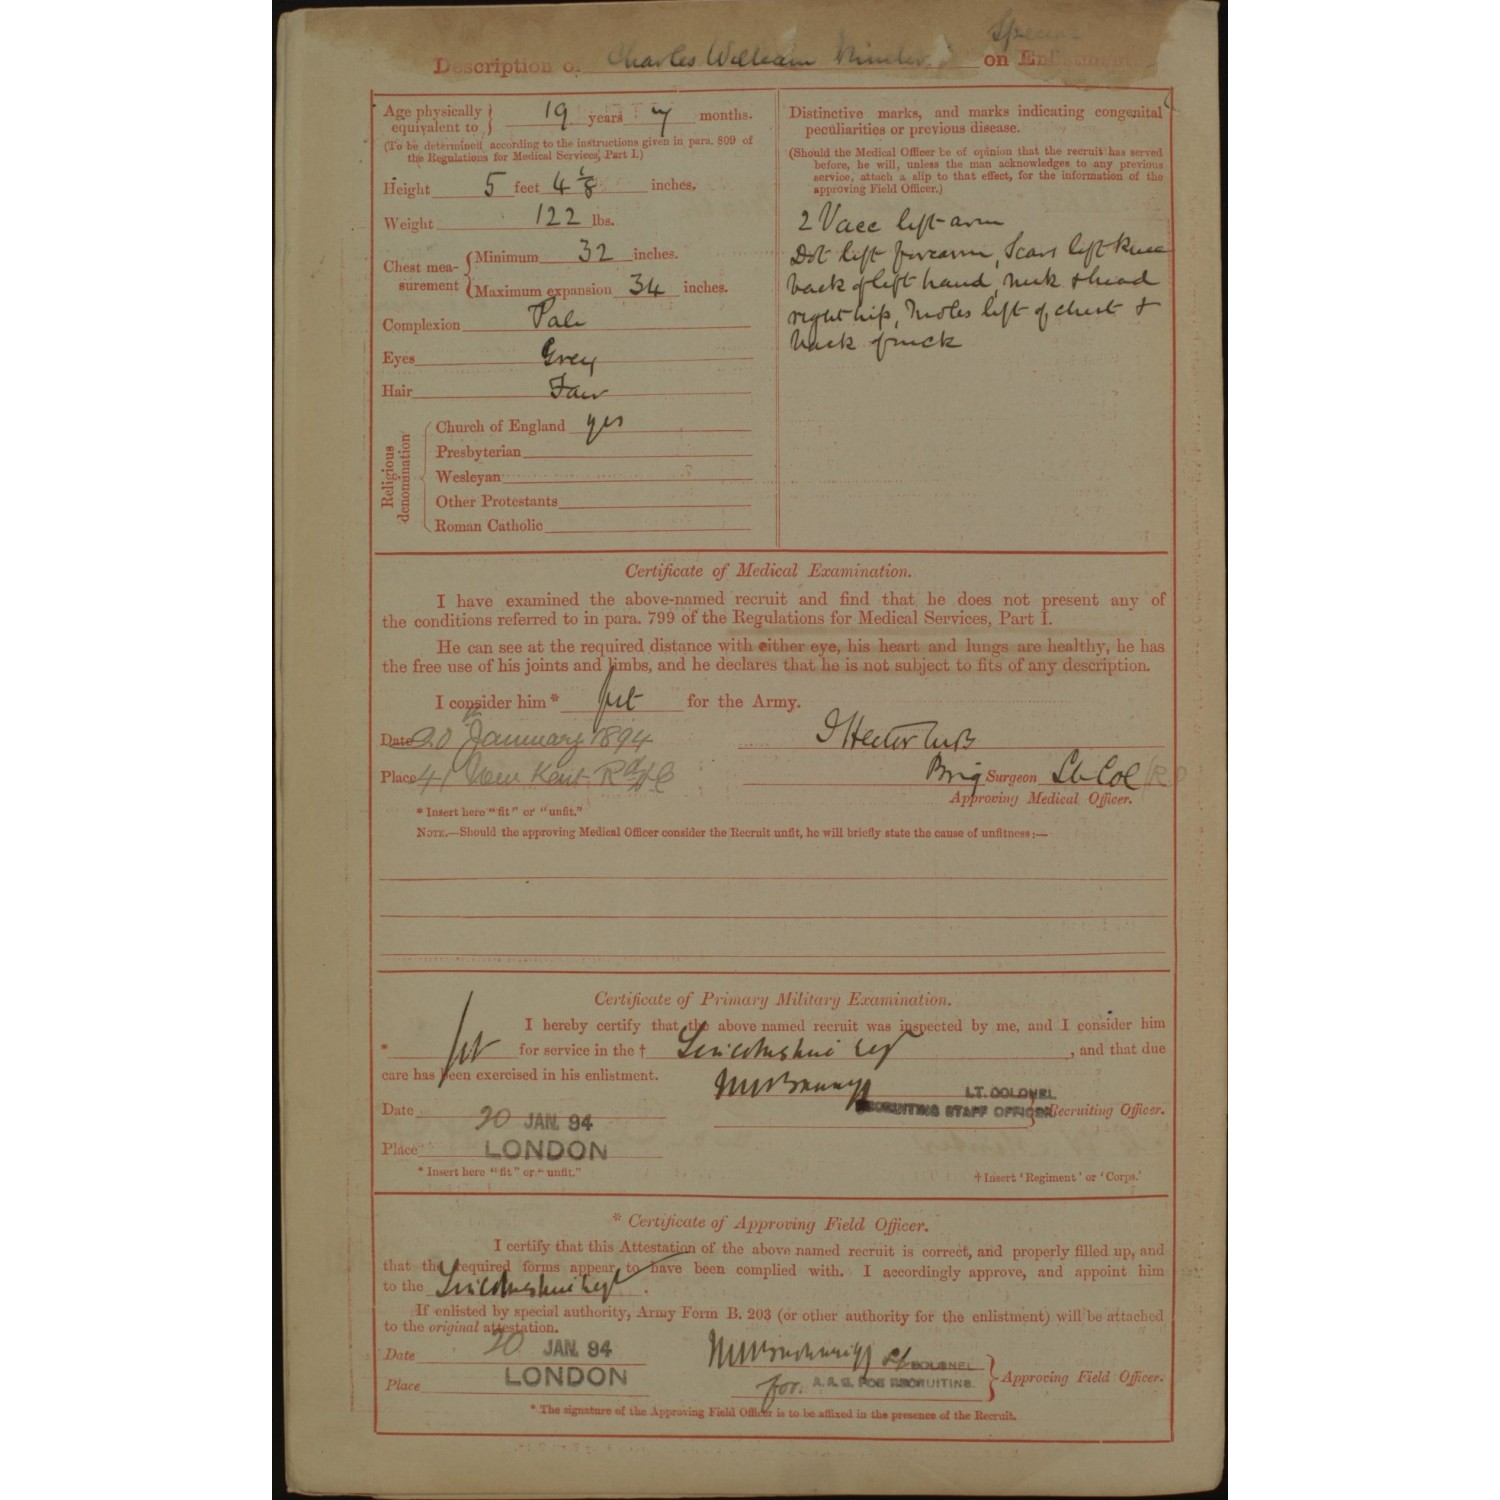 Description of Charles William on Enlistment
Age physically equivalent to } 19 years 7 months.
(To be determined according to the instructions given in para. 809 of
the Regulations for Medical Services, Part I.)
Height 5 feet 4 1/8 inches.
Weight 122 lbs.
Chest measurement { Minimum 32 inches.
Maximum expansion 34 inches.
Complexion Pale
Eyes Grey
Hair Fair
Religious denomination
Church of England yes
Presbyterian
Wesleyan
Other Protestants
Roman Catholic
Distinctive marks, and marks indicating congenital
peculiarities or previous disease.
(Should the Medical Officer be of opinion that the recruit has served
before, he will, unless the man acknowledges to any previous
service, attach a slip to that effect, for the information of the
approving Field Officer.)
2 Vacc left arm
Dot left forearm, Scars left knee
back of left hand, neck & head
right hip, Moles left of chest &
back of neck
Certificate of Medical Examination.
I have examined the above-named recruit and find that he does not present any of
the conditions referred to in para. 799 of the Regulations for Medical Services, Part I.
He can see at the required distance with either eye, his heart and lungs are healthy, he has
the free use of his joints and limbs, and he declares that he is not subject to fits of any description.
I consider him * fit for the Army.
Date 20th January 1894
Hector MB
Place 41 New Kent Rd
Brig Surgeon Lt Col
Approving Medical Officer.
* Insert here "fit" or "unfit."
NOTE.—Should the approving Medical Officer consider the Recruit unfit, he will briefly state the cause of unfitness:—
Certificate of Primary Military Examination.
I hereby certify that the above named recruit was inspected by me, and I consider him
* fit for service in the † Lincolnshire Regt, and that due
care has been exercised in his enlistment.
LT. COLONEL
RECRUITING STAFF OFFICER Recruiting Officer.
Date 20 JAN. 94
Place LONDON
* Insert here "fit" or "unfit."
† Insert 'Regiment' or 'Corps.'
* Certificate of Approving Field Officer.
I certify that this Attestation of the above named recruit is correct, and properly filled up, and
that the required forms appear to have been complied with. I accordingly approve, and appoint him
to the Lincolnshire Regt.
If enlisted by special authority, Army Form B. 203 (or other authority for the enlistment) will be attached
to the original attestation.
Date 20 JAN. 94
Lt COLONEL
Place LONDON
for. A.A.G. FOR RECRUITING. } Approving Field Officer.
* The signature of the Approving Field Officer is to be affixed in the presence of the Recruit.